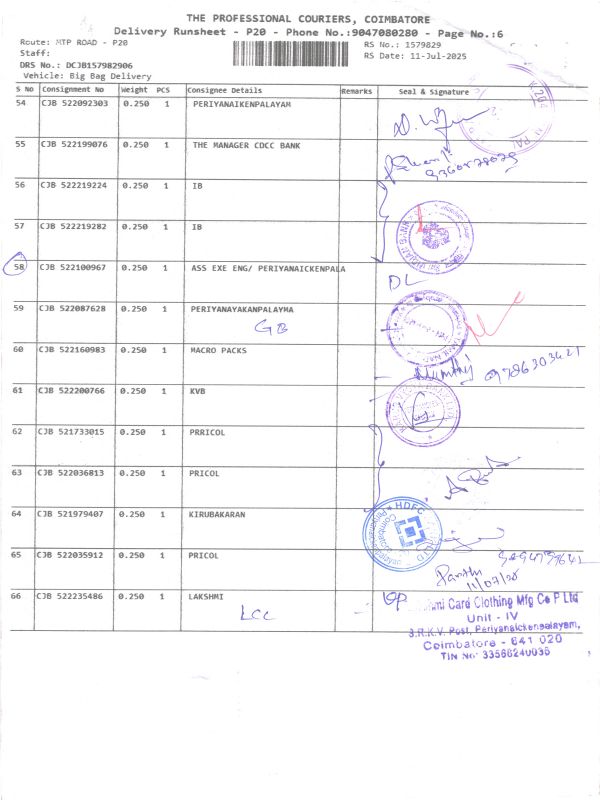 THE PROFESSIONAL COURIERS, COIMBATORE
Delivery Runsheet - P20 - Phone No.:9047080280 - Page No.:6
Route: MTP ROAD - P20
RS No.: 1579829
Staff:
RS Date: 11-Jul-2025
DRS No.: DCJB157982906
Vehicle: Big Bag Delivery
S No Consignment No Weight PCS Consignee Details Remarks Seal & Signature
54 CJB 522092303 0.250 1 PERIYANAIKENPALAYAM
55 CJB 522199076 0.250 1 THE MANAGER CDCC BANK
56 CJB 522219224 0.250 1 IB
57 CJB 522219282 0.250 1 IB
58 CJB 522100967 0.250 1 ASS EXE ENG/ PERIYANAICKENPALA
DL
59 CJB 522087628 0.250 1 PERIYANAYAKANPALAYMA
GB
60 CJB 522160983 0.250 1 MACRO PACKS
9786303421
61 CJB 522200766 0.250 1 KVB
62 CJB 521733015 0.250 1 PRRICOL
63 CJB 522036813 0.250 1 PRICOL
64 CJB 521979407 0.250 1 KIRUBAKARAN
HDFC
LTD
65 CJB 522035912 0.250 1 PRICOL
11/07/25
66 CJB 522235486 0.250 1 LAKSHMI
LCC
Card Clothing Mfg Co P Ltd
Unit - IV
S.R.K.V. Post, Periyanaickenpalayam,
Coimbatore - 641 020
TIN No: 33566240036